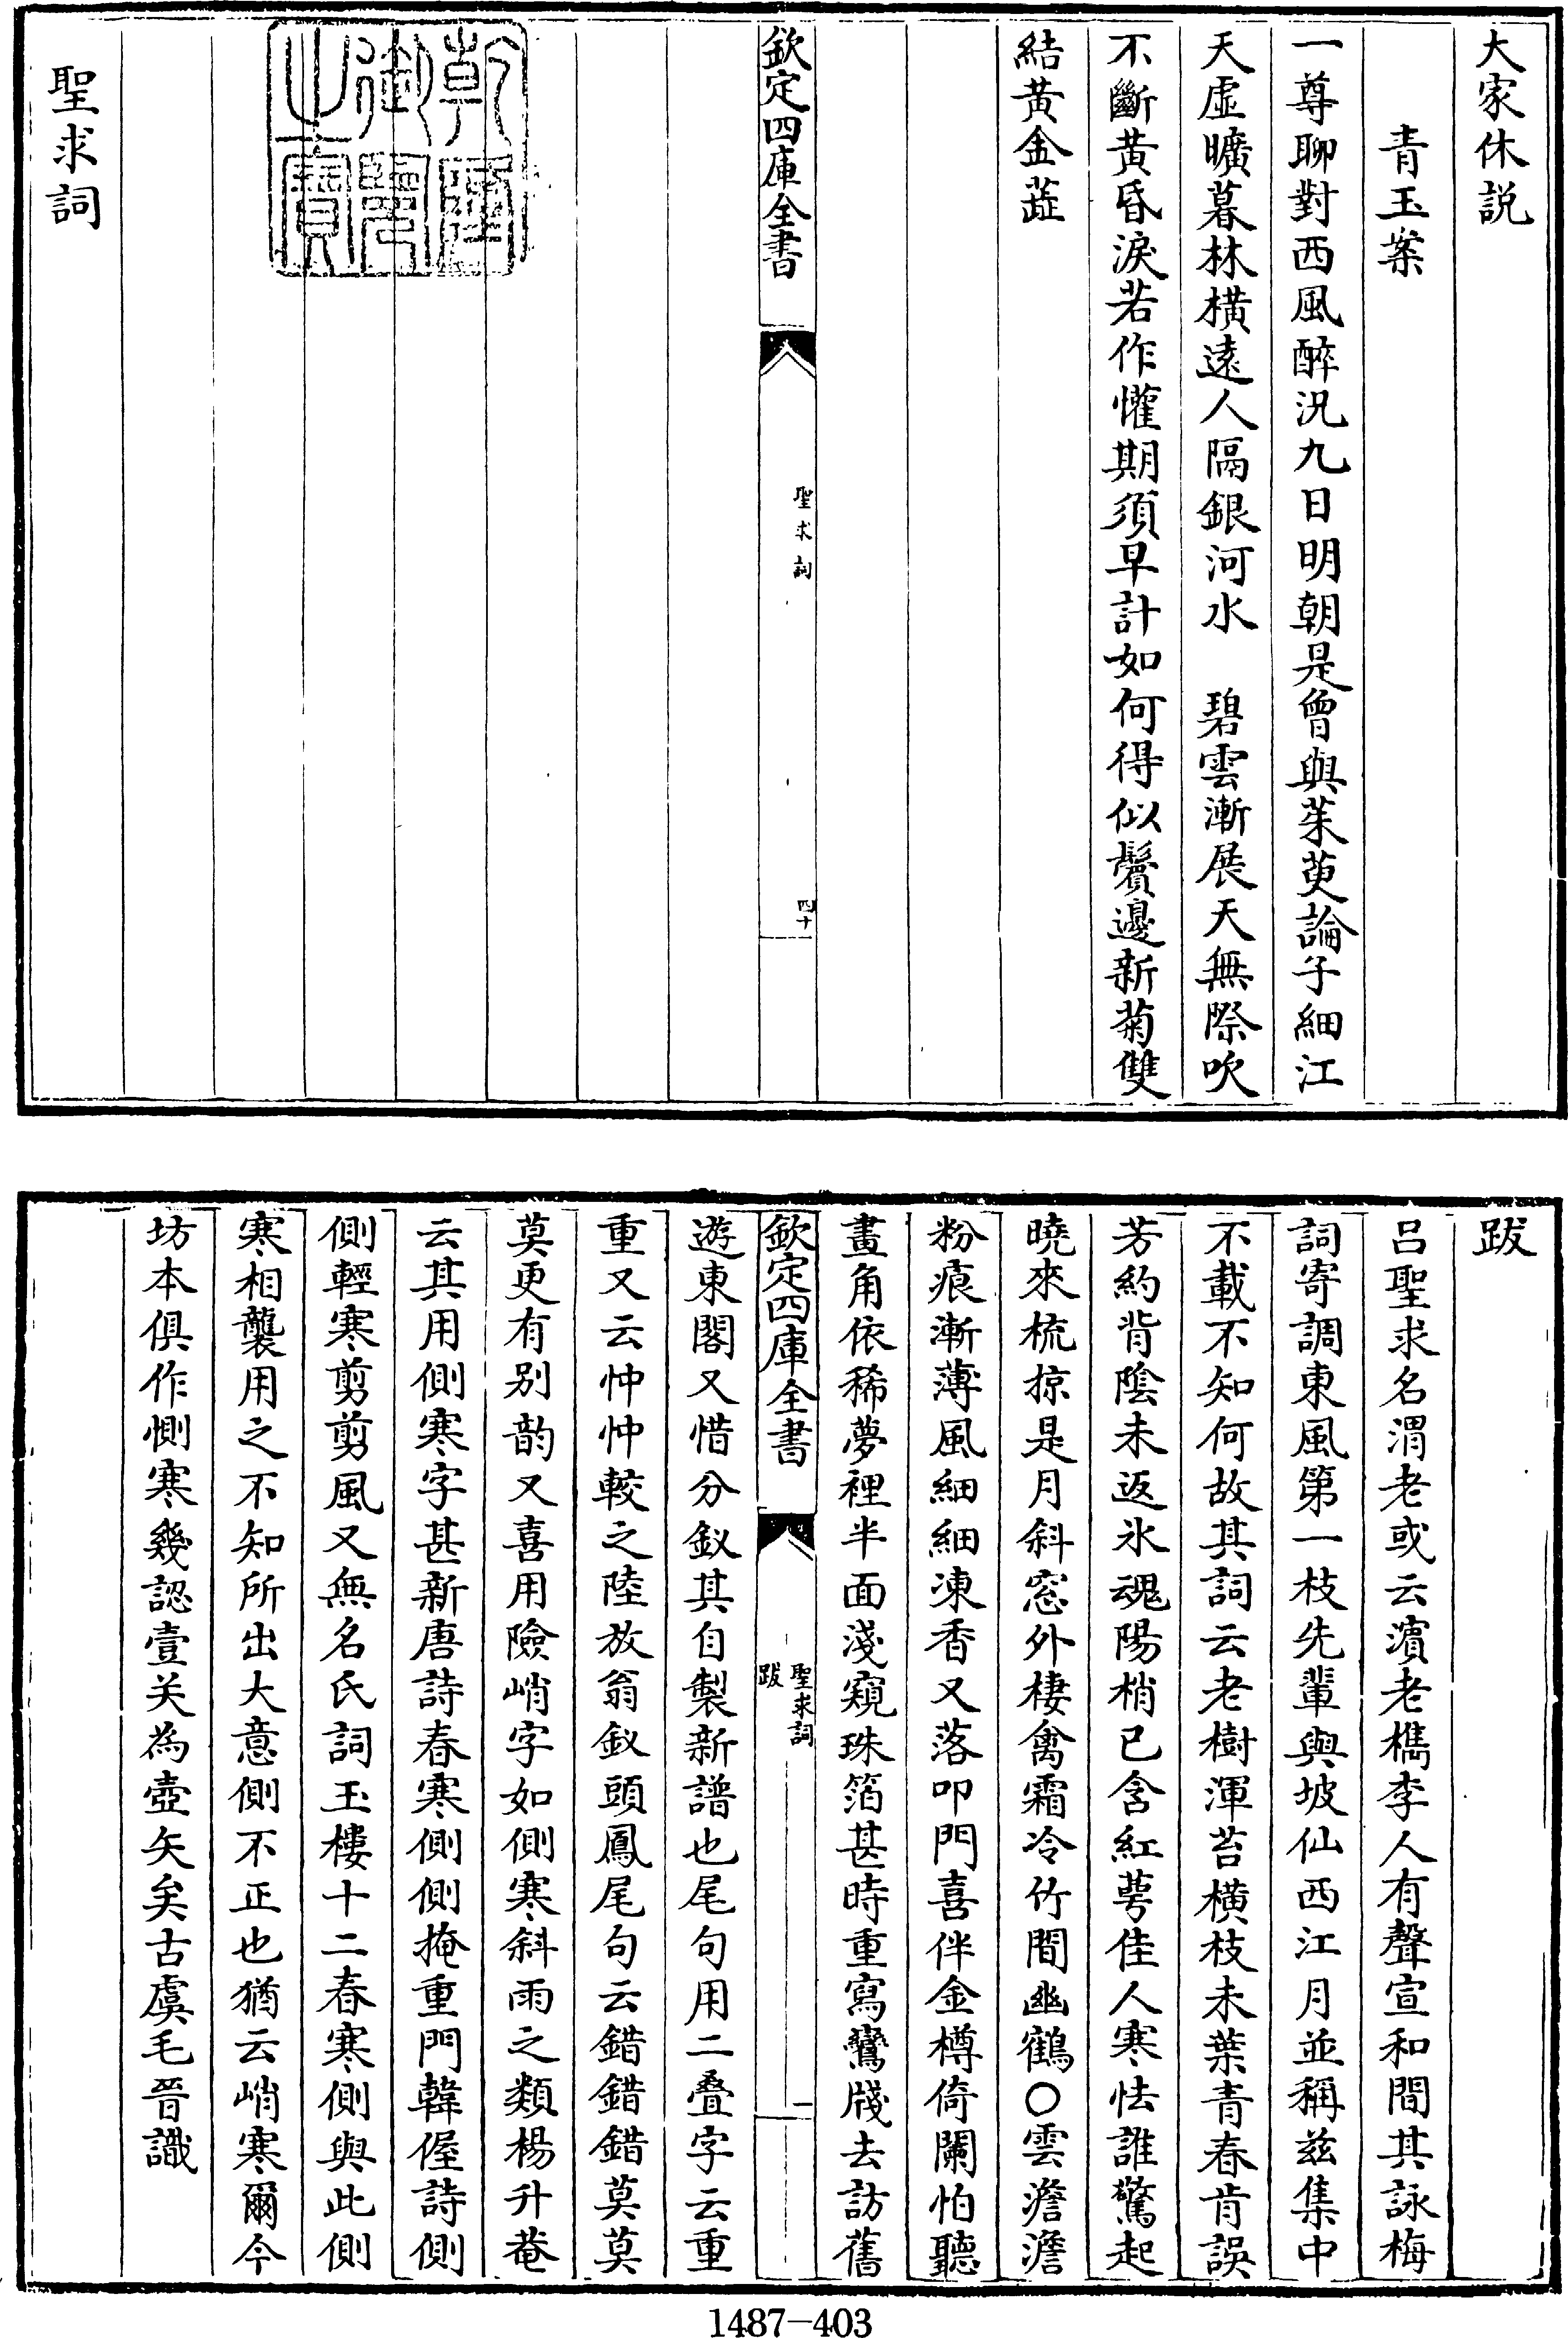 大家休説
青玉案
一尊聊對西風醉況九日明朝是曾與茱萸論子細江
天虛曠暮林橫遠人隔銀河水　碧雲漸展天無際吹
不斷黃昏淚若作懽期須早計如何得似鬢邊新菊雙
結黃金蘂
欽定四庫全書
聖求詞
四十
乾隆御覽之寶
聖求詞
跋
呂聖求名渭老或云濱老檇李人有聲宣和間其詠梅
詞寄調東風第一枝先輩與坡仙西江月並稱兹集中
不載不知何故其詞云老樹渾苔橫枝未葉青春肯誤
芳約背陰未返氷魂陽梢已含紅萼佳人寒怯誰驚起
曉來梳掠是月斜窓外棲禽霜冷竹間幽鶴〇雲澹澹
粉痕漸薄風細細凍香又落叩門喜伴金樽倚闌怕聽
畫角依稀夢裡半面淺窺珠箔甚時重寫鸞牋去訪舊
欽定四庫全書
聖求詞
跋
一
遊東閣又惜分釵其自製新譜也尾句用二叠字云重
重又云忡忡較之陸放翁釵頭鳳尾句云錯錯錯莫莫
莫更有别韵又喜用險峭字如側寒斜雨之類楊升菴
云其用側寒字甚新唐詩春寒側側掩重門韓偓詩側
側輕寒剪剪風又無名氏詞玉樓十二春寒側與此側
寒相襲用之不知所出大意側不正也猶云峭寒爾今
坊本俱作惻寒幾認壹关為壺矢矣古虞毛晉識
1487—403